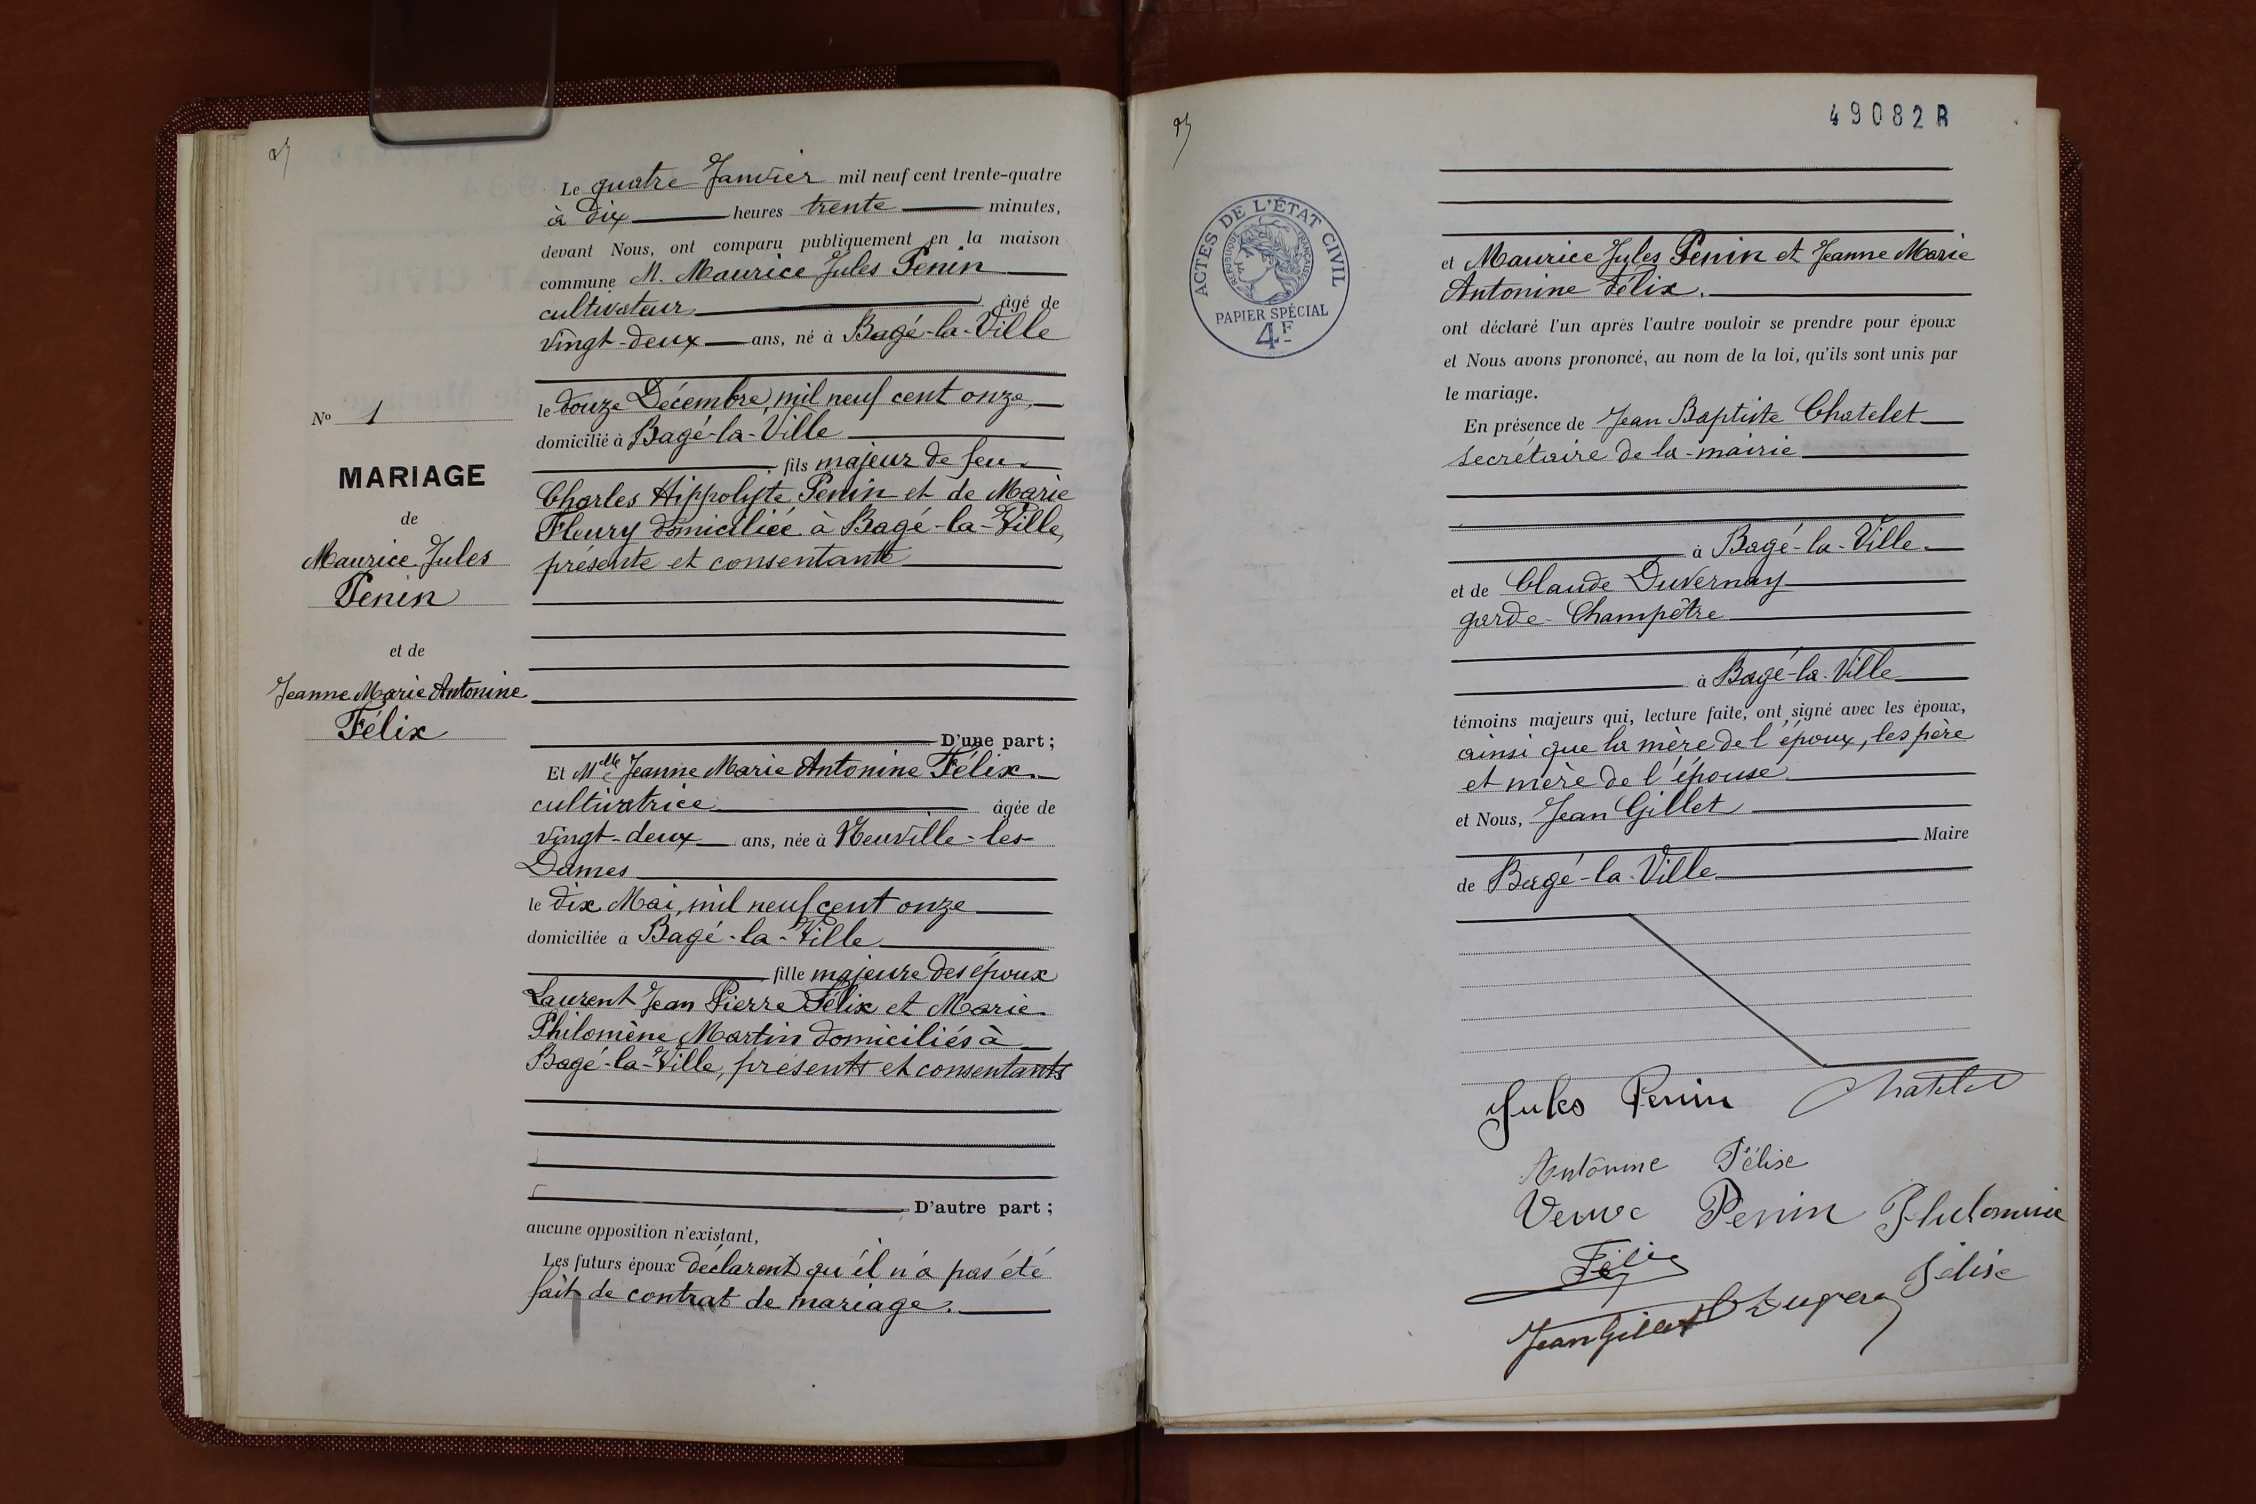 Le quatre Janvier mil neuf cent trente-quatre
à dix heures trente minutes,
devant Nous, ont comparu publiquement en la maison
commune M. Maurice Jules Penin
cultivateur âgé de
vingt-deux ans, né à Bagé-la-Ville
le douze Décembre, mil neuf cent onze,
domicilié à Bagé-la-Ville
fils majeur de feu
Charles Hippolyte Penin et de Marie
Fleury domiciliée à Bagé-la-Ville,
présente et consentante
D'une part ;
Et Melle Jeanne Marie Antonine Félix
cultivatrice âgée de
vingt-deux ans, née à Neuville-les-
Dames
le dix Mai, mil neuf cent onze
domiciliée à Bagé-la-Ville
fille majeure des époux
Laurent Jean Pierre Félix et Marie
Philomène Martin domiciliés à
Bagé-la-Ville, présents et consentants
D'autre part ;
aucune opposition n'existant,
Les futurs époux déclarent qu'il n'a pas été
fait de contrat de mariage.
No 1
MARIAGE
de
Maurice Jules
Penin
et de
Jeanne Marie Antonine
Félix
49082 R
ACTES DE L'ÉTAT CIVIL
RÉPUBLIQUE FRANÇAISE
PAPIER SPÉCIAL
4F
et Maurice Jules Penin et Jeanne Marie
Antonine Félix.
ont déclaré l'un après l'autre vouloir se prendre pour époux
et Nous avons prononcé, au nom de la loi, qu'ils sont unis par
le mariage.
En présence de Jean Baptiste Chatelet
secrétaire de la mairie
à Bagé-la-Ville
et de Claude Duvernay
garde-Champêtre
à Bagé-la-Ville
témoins majeurs qui, lecture faite, ont signé avec les époux,
ainsi que la mère de l'époux, les père
et mère de l'épouse
et Nous, Jean Gillet
Maire
de Bagé-la-Ville
Jules Penin Chatelet
Antonine Félise
Veuve Penin Philomine
Félix Félise
Jean Gillet